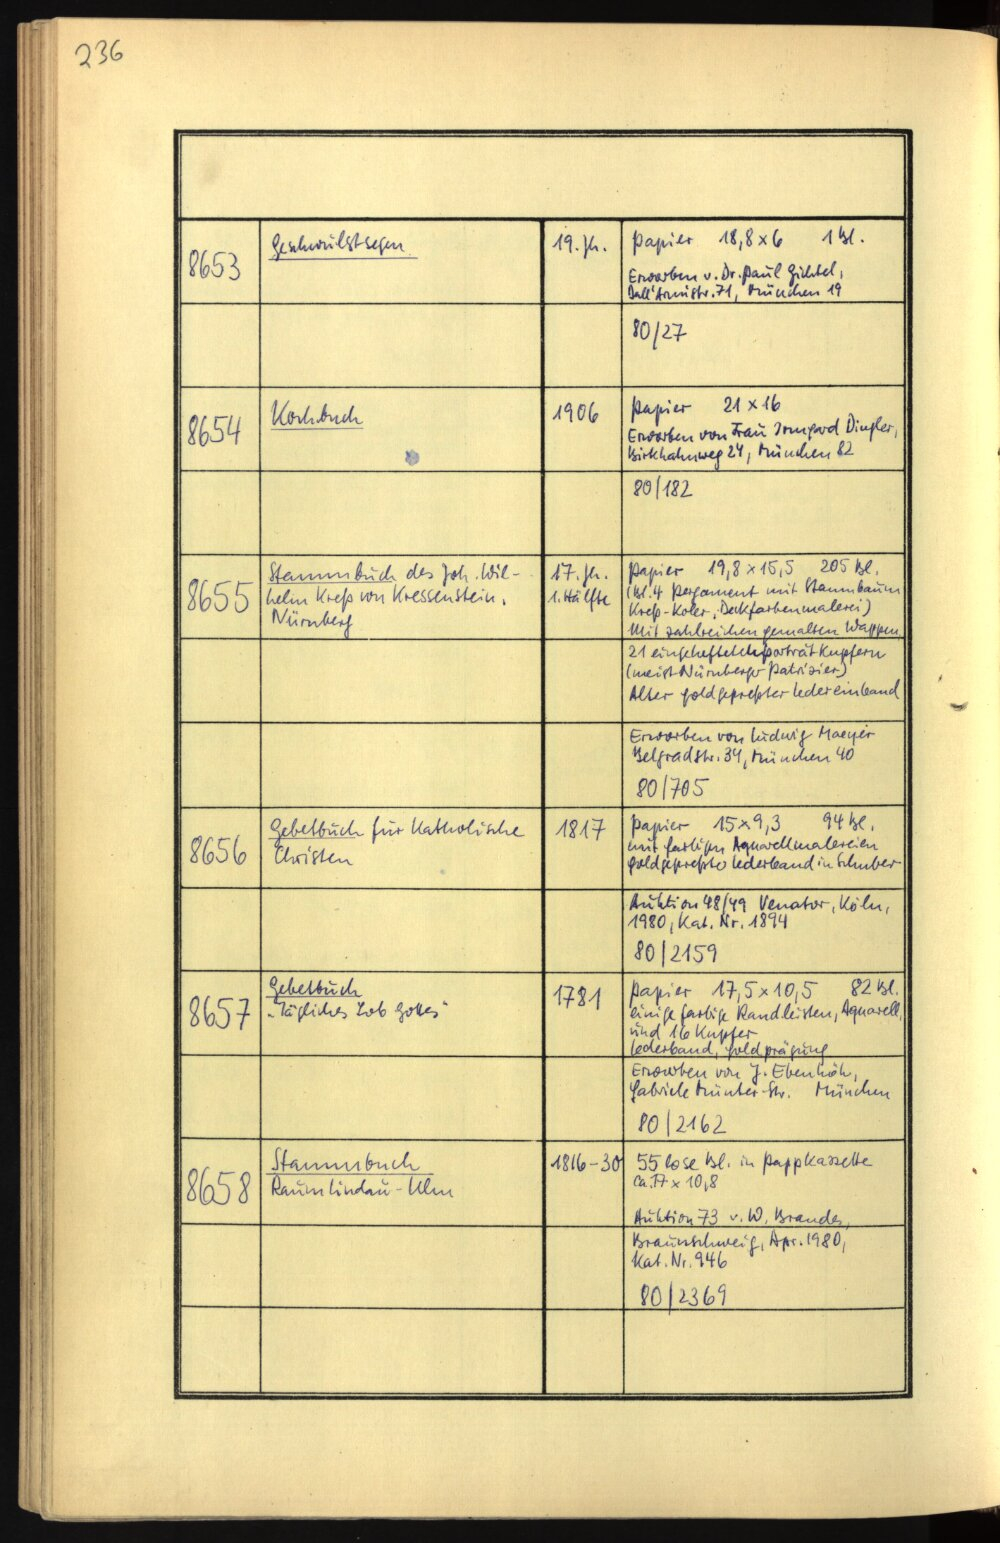 236
8653
Geschwulstsegen
19. Jh.
Papier 18,8 x 6 1 Bl.
Erworben v. Dr. Paul Gichtel,
Dall'Armistr. 71, München 19
80/27
8654
Kochbuch
1906
Papier 21 x 16
Erworben von Frau Irmgard Dingler,
Birkhahnweg 24, München 82
80/182
8655
Stammbuch des Joh. Wil-
helm Kreß von Kressenstein,
Nürnberg
17. Jh.
1. Hälfte
Papier 19,8 x 15,5 205 Bl.
(Bl. 4 Pergament mit Stammbaum
Kreß-Koler, Deckfarbenmalerei)
Mit zahlreichen gemalten Wappen
21 eingehefteten Porträtkupfern
(meist Nürnberger Patrizier)
Alter goldgepreßter Ledereinband
Erworben von Ludwig
Belgradstr. 34, München 40
80/705
8656
Gebetbuch für Katholische
Christen
1817
Papier 15 x 9,3 94 Bl.
mit farbigen Aquarellmalereien
goldgepreßter Lederband in Schuber
Auktion 48/49 Venator, Köln,
1980, Kat. Nr. 1894
80/2159
8657
Gebetbuch
"Tägliches Lob Gottes"
1781
Papier 17,5 x 10,5 82 Bl.
einige farbige Randleisten, Aquarell,
und 16 Kupfer
Lederband, Goldprägung
Erworben von J. Ebenhöh,
Gabriele Münter-Str. München
80/2162
8658
Stammbuch
Raum Lindau-Ulm
1816-30
55 lose Bl. in Pappkassette
ca. 17 x 10,8
Auktion 73 v. W. Brandes,
Braunschweig, Apr. 1980,
Kat. Nr. 946
80/2369